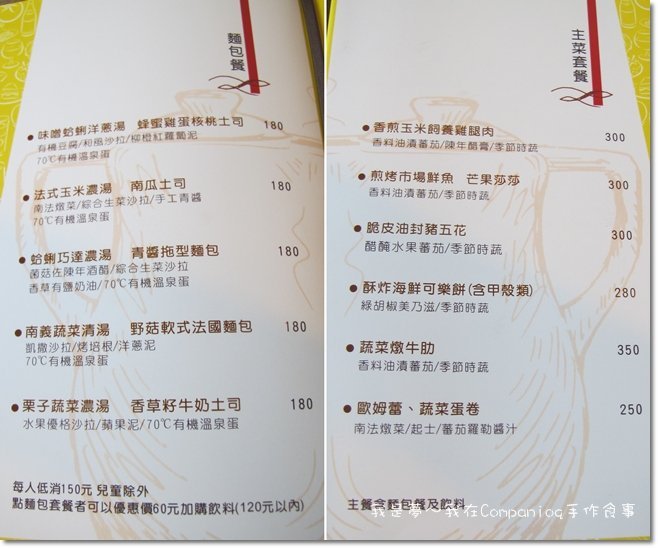 麵包餐
味噌蛤蜊洋蔥湯 蜂蜜雞蛋核桃土司 180
有機豆腐/和風沙拉/柳橙紅蘿蔔泥
70℃有機溫泉蛋
法式玉米濃湯 南瓜土司 180
南法燉菜/綜合生菜沙拉/手工青醬
70℃有機溫泉蛋
蛤蜊巧達濃湯 青醬拖型麵包 180
菌菇佐陳年酒醋/綜合生菜沙拉
香草有鹽奶油/70℃有機溫泉蛋
南義蔬菜清湯 野菇軟式法國麵包 180
凱撒沙拉/烤培根/洋蔥泥
70℃有機溫泉蛋
栗子蔬菜濃湯 香草籽牛奶土司 180
水果優格沙拉/蘋果泥/70℃有機溫泉蛋
每人低消150元 兒童除外
點麵包套餐者可以優惠價60元加購飲料(120元以內)
主菜套餐
香煎玉米飼養雞腿肉 300
香料油漬蕃茄/陳年醋膏/季節時蔬
煎烤市場鮮魚 芒果莎莎 300
香料油漬蕃茄/季節時蔬
脆皮油封豬五花 300
醋醃水果蕃茄/季節時蔬
酥炸海鮮可樂餅(含甲殼類) 280
綠胡椒美乃滋/季節時蔬
蔬菜燉牛肋 350
香料油漬蕃茄/季節時蔬
歐姆蕾、蔬菜蛋卷 250
南法燉菜/起士/蕃茄羅勒醬汁
主餐含麵包餐及飲料
我是夢～我在Companioa手作食事